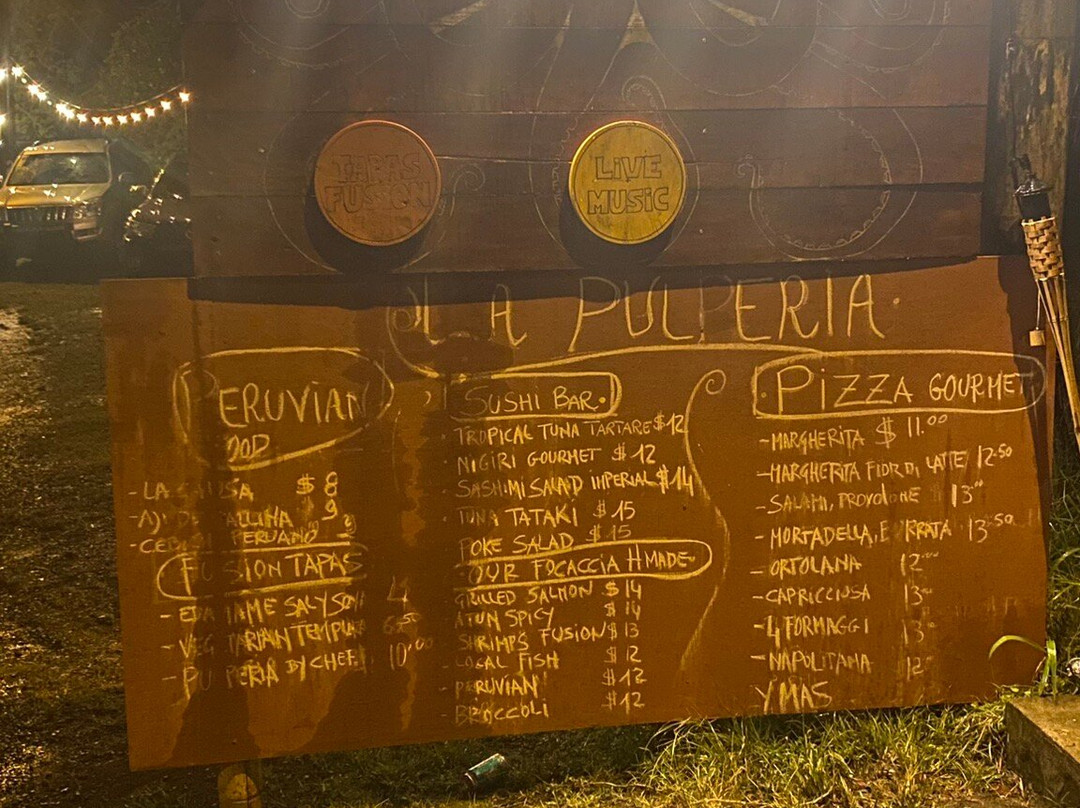 TAPAS
FUSION
LIVE
MUSIC
LA PULPERIA.
PERUVIAN
SUSHI BAR.
· TROPICAL TUNA TARTARE $12
· NIGIRI GOURMET $12
· SASHIMI SALAD IMPERIAL $14
· TUNA TATAKI $15
POKE SALAD $15
OUR FOCACCIA HMADE
GRILLED SALMON $14
ATUN SPICY $14
SHRIMPS FUSION $13
- LOCAL FISH $12
- PERUVIAN $12
- BROCCOLI $12
PIZZA GOURMET
- MARGHERITA $11.00
- MARGHERITA FIOR DI LATTE 12.50
- SALAMI, PROVOLONE 13"
- MORTADELLA, 13.50
- ORTOLANA 12"
- CAPRICCIOSA 13"
- 4 FORMAGGI 13"
- NAPOLITANA 12"
Y MAS
- LA $8
9
- PERUANO 9
FUSION TAPAS
- 4
- 6.50
- BY CHEF. 10.00